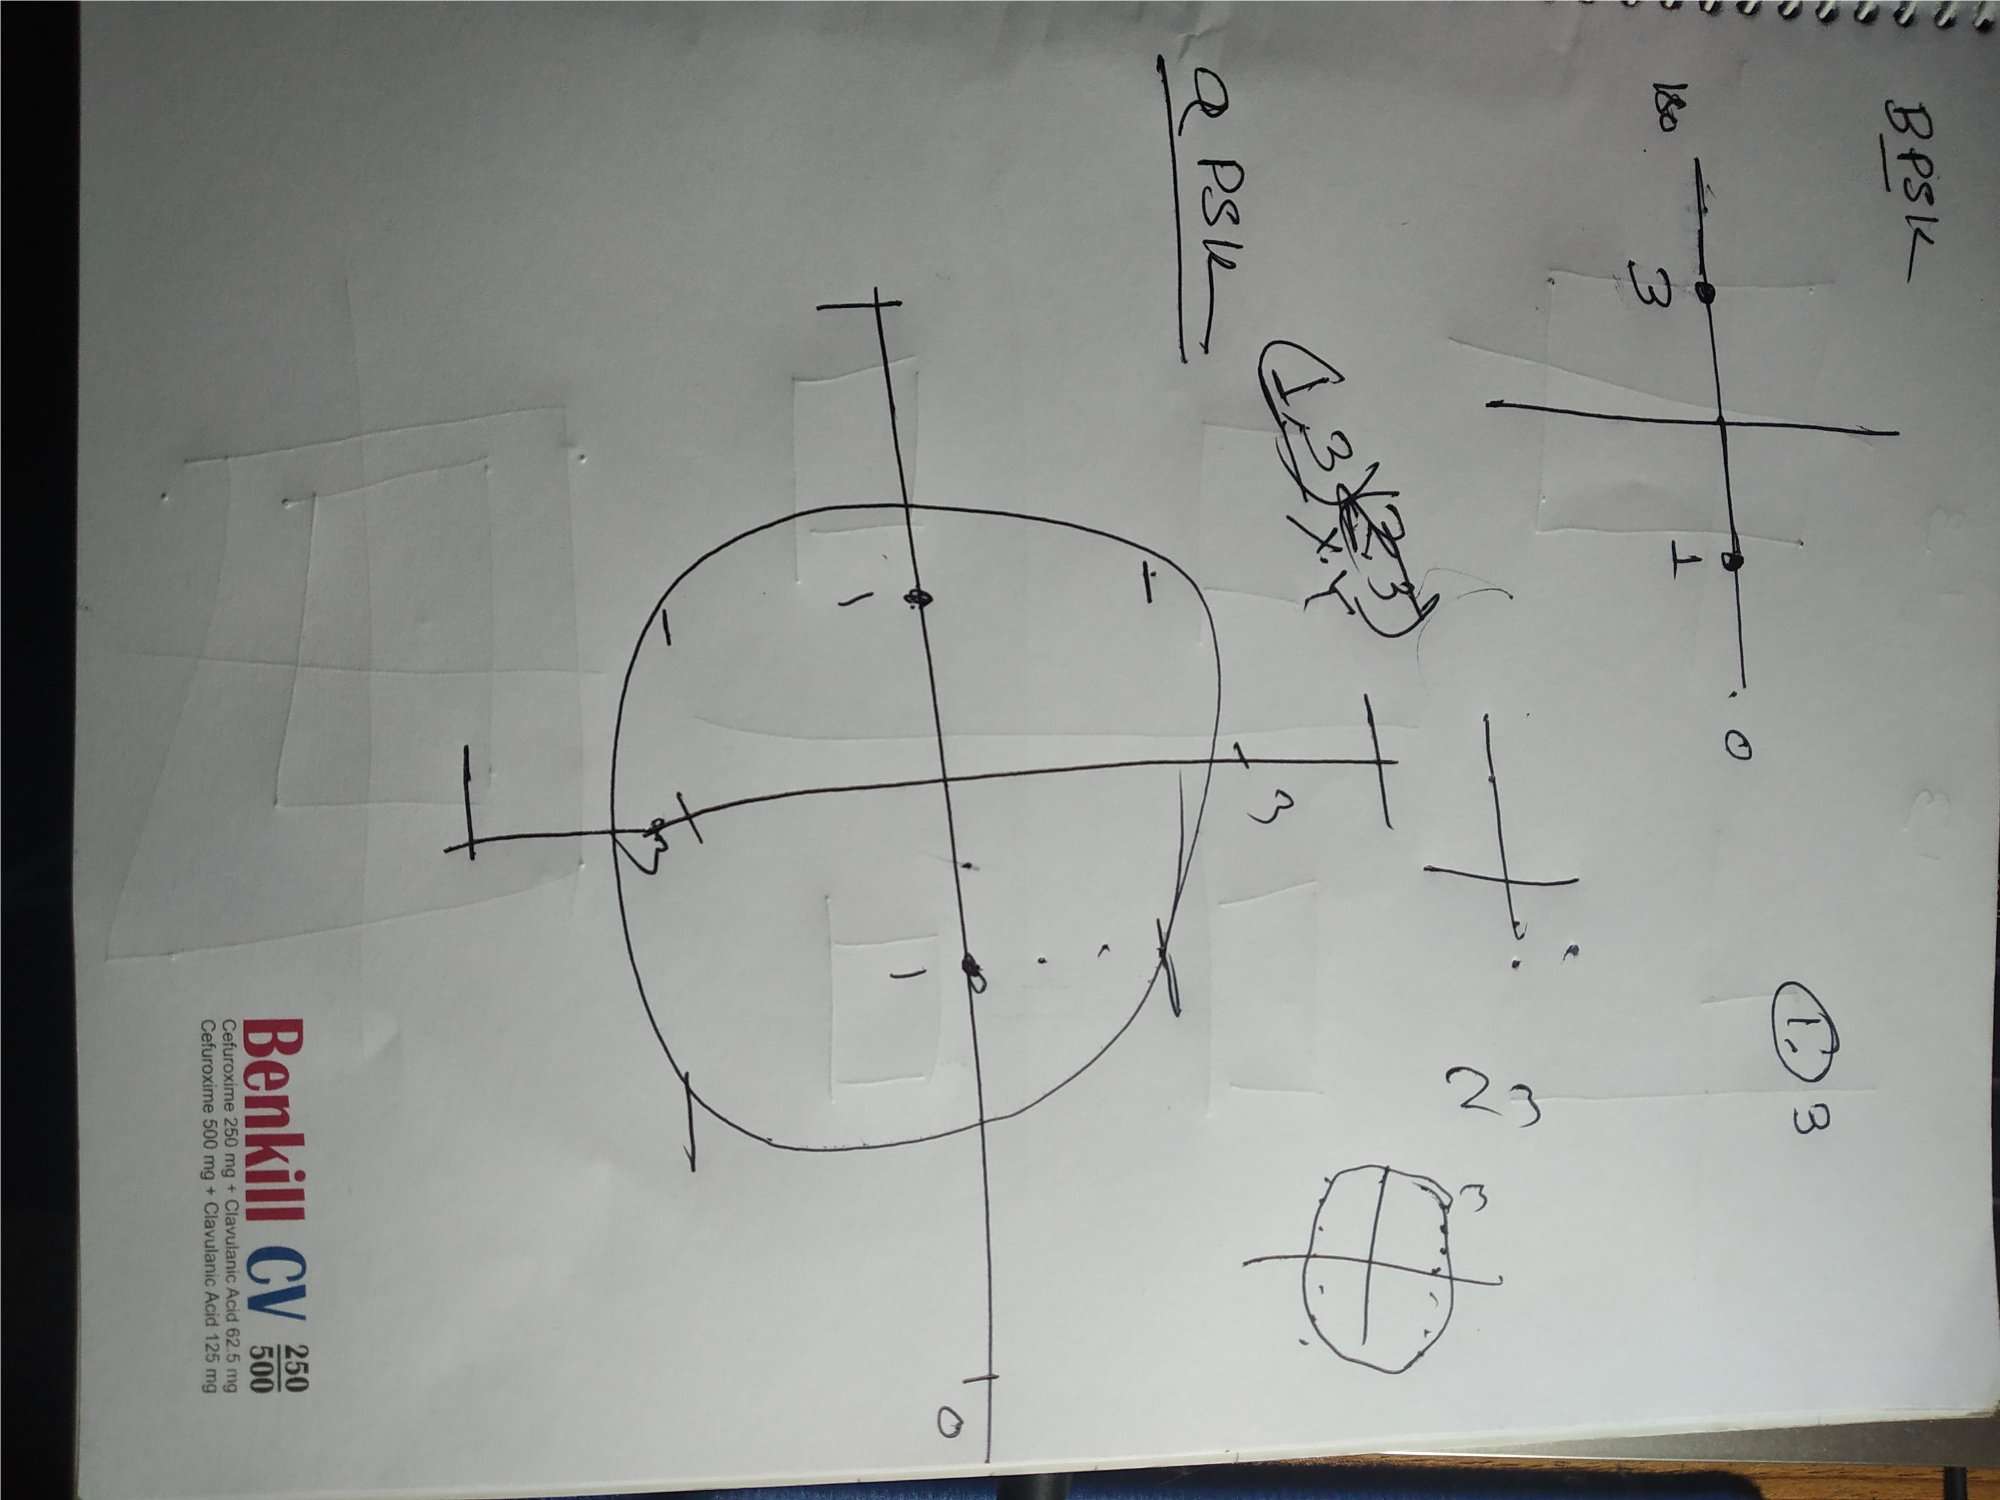 BPSK
180
3
1
0
1.
3
QPSK
(1,3)
(2,3)
X.Y
23
3
3
1
1
3
0
Benkill CV 250 500
Cefuroxime 250 mg + Clavulanic Acid 62.5 mg
Cefuroxime 500 mg + Clavulanic Acid 125 mg